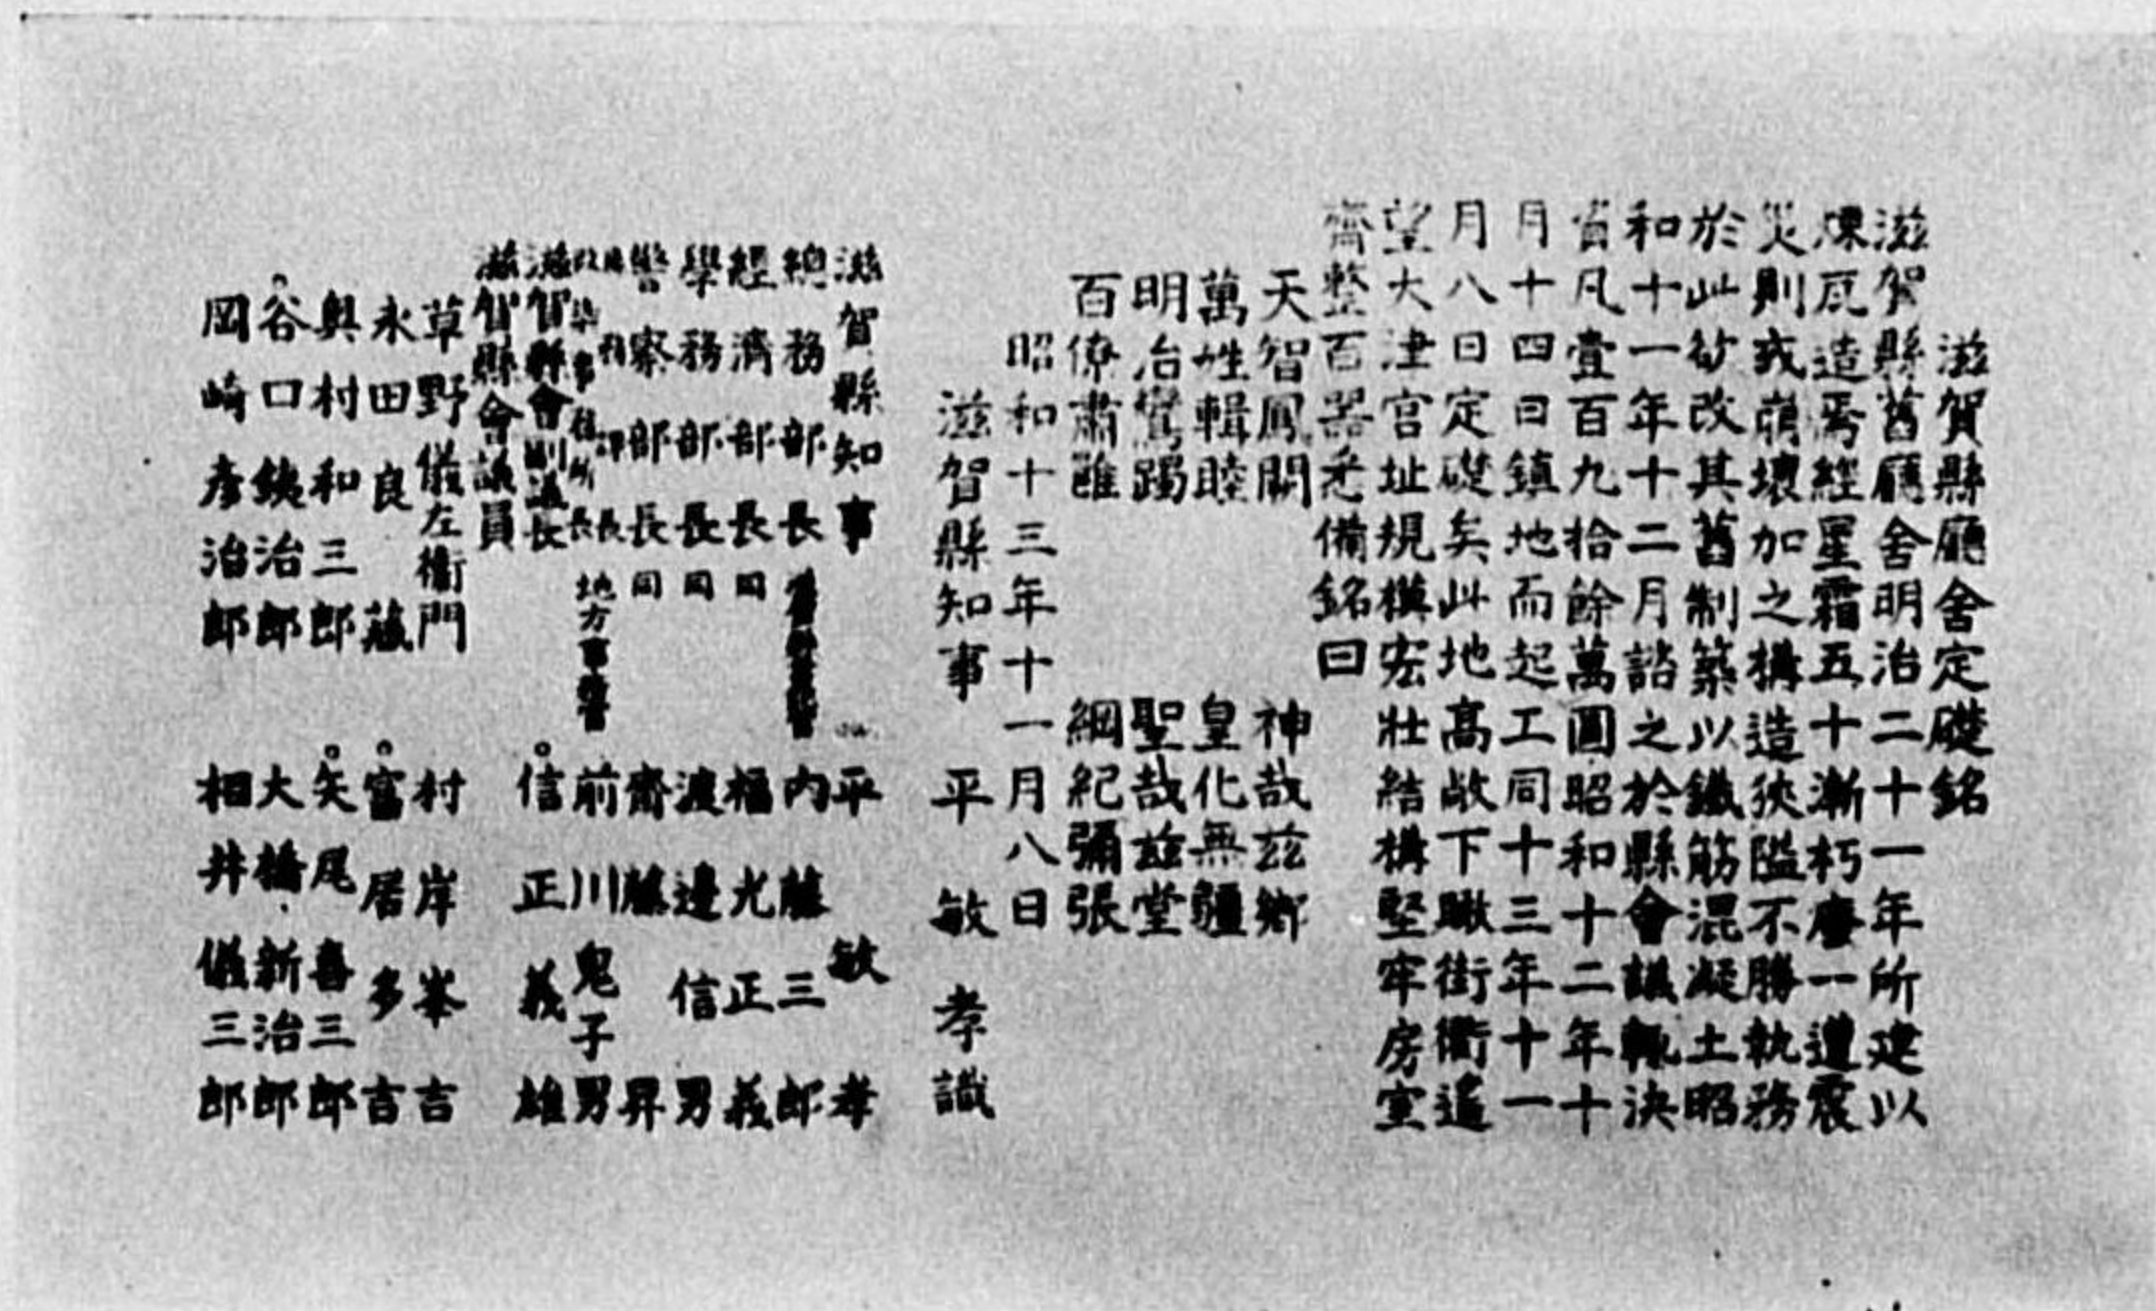 滋賀縣廳舍定礎銘
滋賀縣舊廳舍明治二十一年所建以
煉瓦造焉經星霜五十漸朽廢一遭震
災則或崩壞加之構造狹隘不勝執務
於此欲改其舊制築以鐵筋混凝土昭
和十一年十二月諮之於縣會議輒決
省凡壹百九拾餘萬圓昭和十二年十
月十四日鎮地而起工同十三年十一
月八日定礎矣此地高敞下瞰街衢遙
望大津宮址規模宏壯結構堅牢房室
齊整百器悉備銘曰
天智鳳闕 神哉茲鄉
萬姓輯睦 皇化無疆
明治鸞躅 聖哉茲堂
百僚肅雝 綱紀彌張
昭和十三年十一月八日
滋賀縣知事 平敏孝識
滋賀縣知事 平敏孝
總務部長 內藤三郎
經濟部長同 福光正義
學務部長同 渡邊信男
警察部長同 齋藤昇
長 地方事務官 前川鬼子男
滋賀縣會副議長 信正義雄
滋賀縣會議員
草野儀左衞門 村岸峯吉
永田良藏 富居多吉
奧村和三郎 矢尾喜三郎
谷口鐵治郎 大橋新治郎
岡崎彥治郎 相井儀三郎